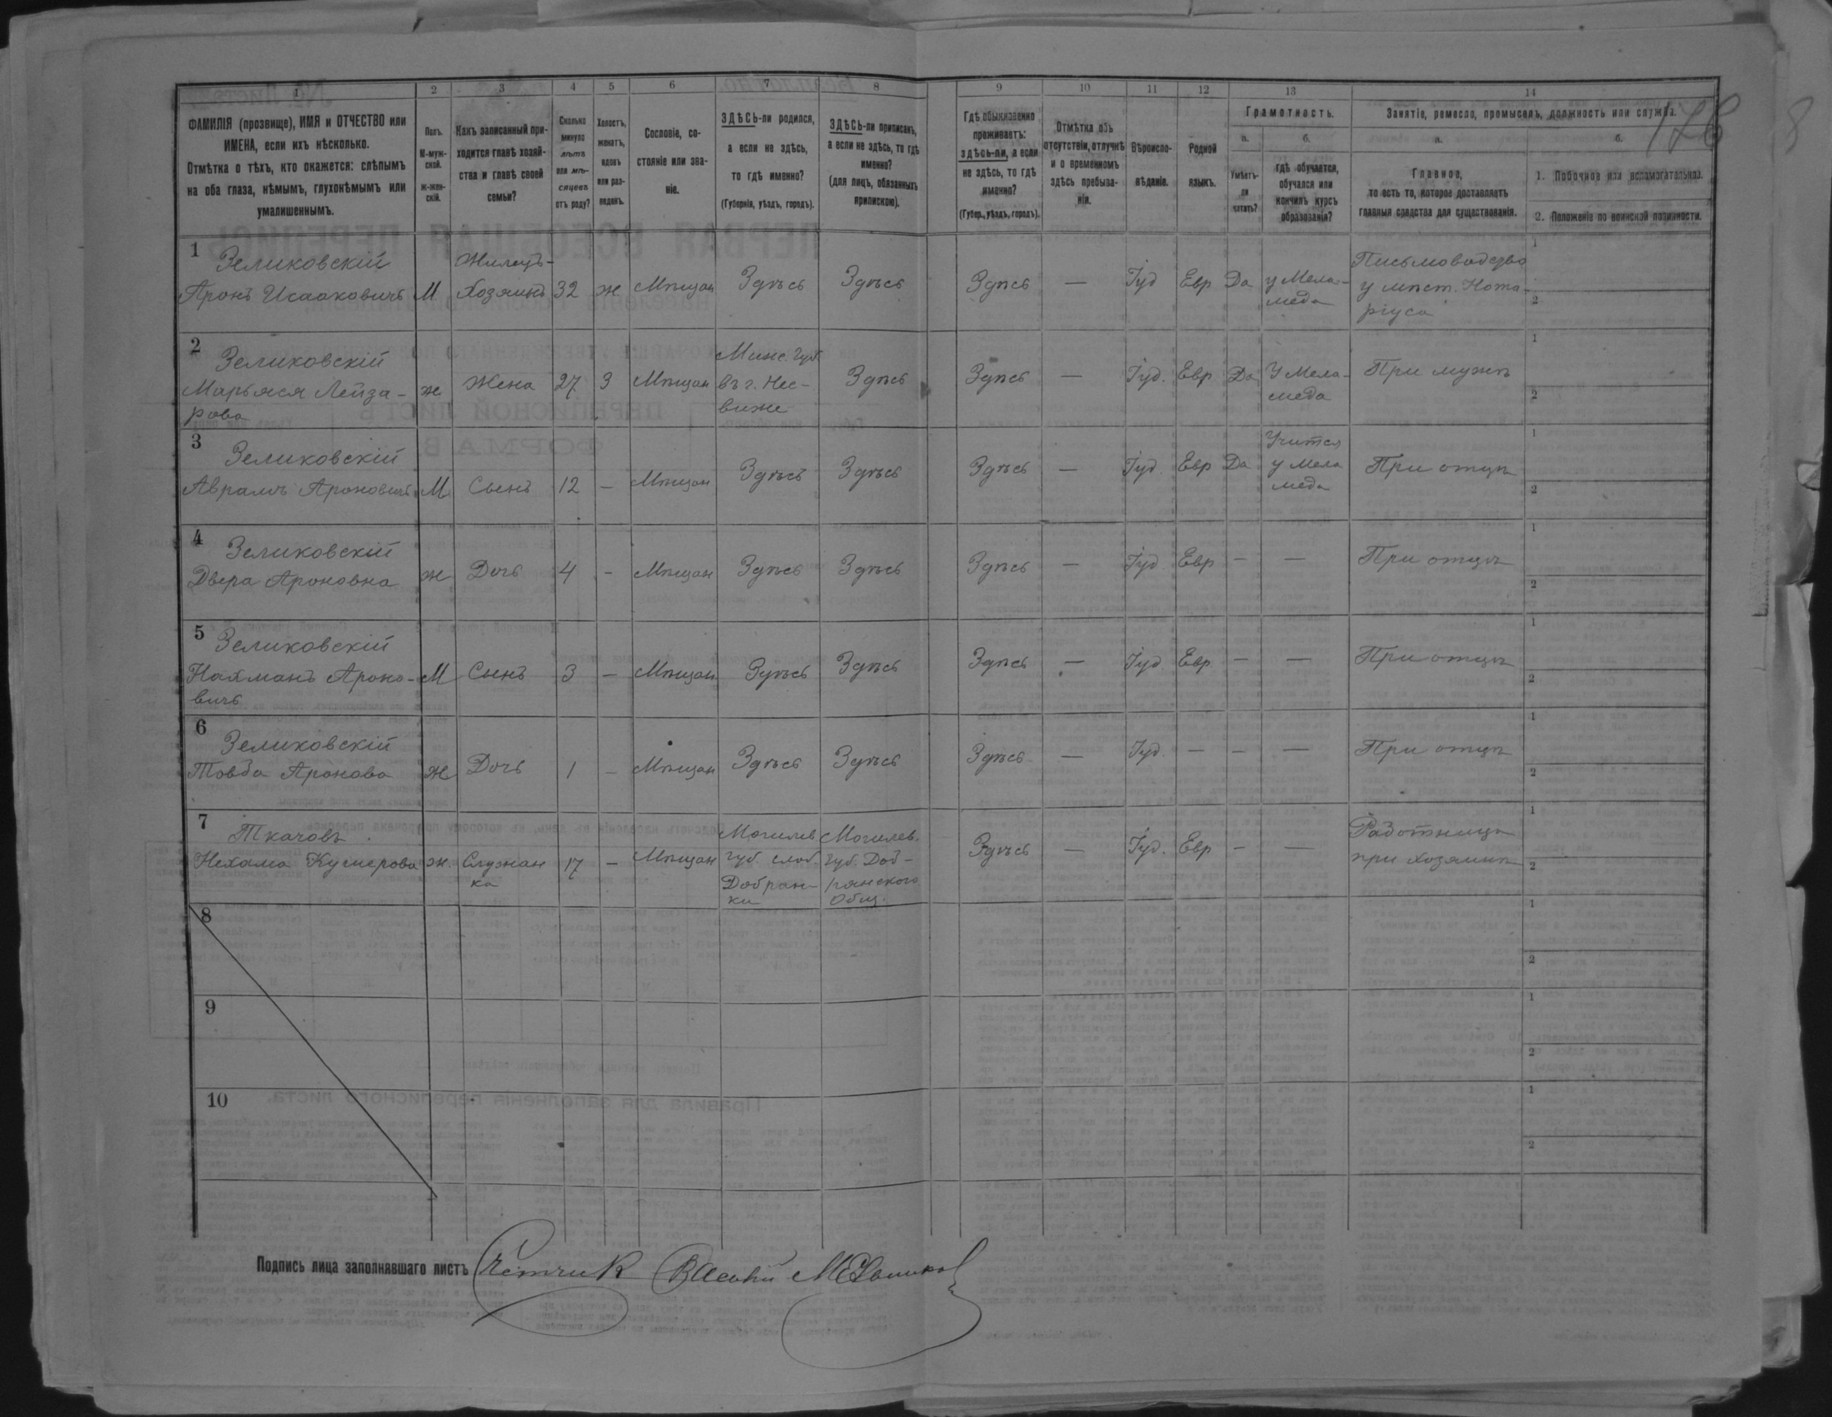 1 2 3 4 5 6 7 8 9 10 11 12 13 14
ФАМИЛІЯ (прозвище), ИМЯ и ОТЧЕСТВО или
ИМЕНА, если ихъ нѣсколько.
Отмѣтка о тѣхъ, кто окажется: слѣпымъ
на оба глаза, нѣмымъ, глухонѣмымъ или
умалишеннымъ.
Полъ.
М-муж-
ской.
Ж-жен-
скій.
Какъ записанный при-
ходится главѣ хозяй-
ства и главѣ своей
семьи?
Сколько
минуло
лѣтъ
или мѣ-
сяцевъ
отъ роду?
Холостъ,
женатъ,
вдовъ
или раз-
веденъ.
Сословіе, со-
стояніе или зва-
ніе.
ЗДѢСЬ-ли родился,
а если не здѣсь,
то гдѣ именно?
(Губернія, уѣздъ, городъ).
ЗДѢСЬ-ли приписанъ,
а если не здѣсь, то гдѣ
именно?
(для лицъ, обязанныхъ
припискою).
Гдѣ обыкновенно
проживаетъ:
здѣсь-ли, а если
не здѣсь, то гдѣ
именно?
(Губер., уѣздъ, городъ).
Отмѣтка объ
отсутствіи, отлучкѣ
и о временномъ
здѣсь пребыва-
ніи.
Вѣроиспо-
вѣданіе.
Родной
языкъ.
Грамотность.
а.
Умѣетъ-
ли
читать?
б.
гдѣ обучается,
обучался или
кончилъ курсъ
образованія?
Занятіе, ремесло, промыселъ, должность или служба.
а.
Главное,
то есть то, которое доставляетъ
главныя средства для существованія.
б.
1. Побочное или вспомогательное.
2. Положеніе по воинской повинности.
1 Зеликовскій
Аронъ Исааковичъ М Жилецъ-
Хозяинъ 32 ж Мѣщан Здѣсь Здѣсь Здѣсь — Іуд Евр Да у Мела-
меда Письмоводство
у мѣст. Нота-
ріуса 1 2
2 Зеликовскій
Марьяся Лейза-
рова ж Жена 27 З Мѣщан Минс. Губ.
въ г. Нес-
виже Здѣсь Здѣсь — Іуд. Евр Да У Мела-
меда При мужѣ 1 2
3 Зеликовскій
Аврамъ Ароновичъ М Сынъ 12 — Мѣщан Здѣсь Здѣсь Здѣсь — Іуд Евр Да Учится
у Мела
меда При отцѣ 1 2
4 Зеликовскій
Двера Ароновна ж Дочь 4 - Мѣщан Здѣсь Здѣсь Здѣсь — Іуд. Евр — — При отцѣ 1 2
5 Зеликовскій
Нахманъ Ароно-
вичъ М Сынъ 3 — Мѣщан Здѣсь Здѣсь Здѣсь — Іуд. Евр. — — При отцѣ 1 2
6 Зеликовскій
Товба Аронова ж Дочь 1 — Мѣщан Здѣсь Здѣсь Здѣсь — Іуд. — — — При отцѣ 1 2
7 Ткачовъ
Нехама ж. Служан
ка 17 — Мѣщан Могилев.
Губ. слоб.
Добрян-
ки Могилев.
Губ. Доб-
рянского
Общ. Здѣсь — Іуд. Евр — — Работница
при хозяинѣ 1 2
8 1 2
9 1 2
10 1 2
Подпись лица заполнявшаго листъ Счетчик